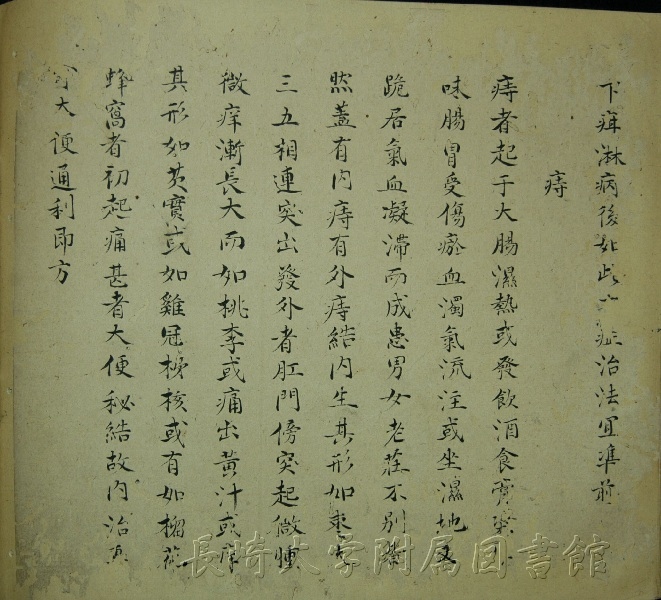 下疳淋病後如此症治法宜準前
痔
痔者起于大腸濕熱或發飲酒食
味腸胃受傷瘀血濁氣流注或坐濕地又
跪居氣血凝滞而成患男女老莊不別
然蓋有内痔有外痔結内生其形如棗
三五相連突出發外者肛門傍突起微腫
微痒漸長大而如桃李或痛出黄汁或痒
其形如芡實或如雞冠核或有如
蜂窩者初起痛甚者大便秘結故内治
大便通利即方
長崎大学附属図書館